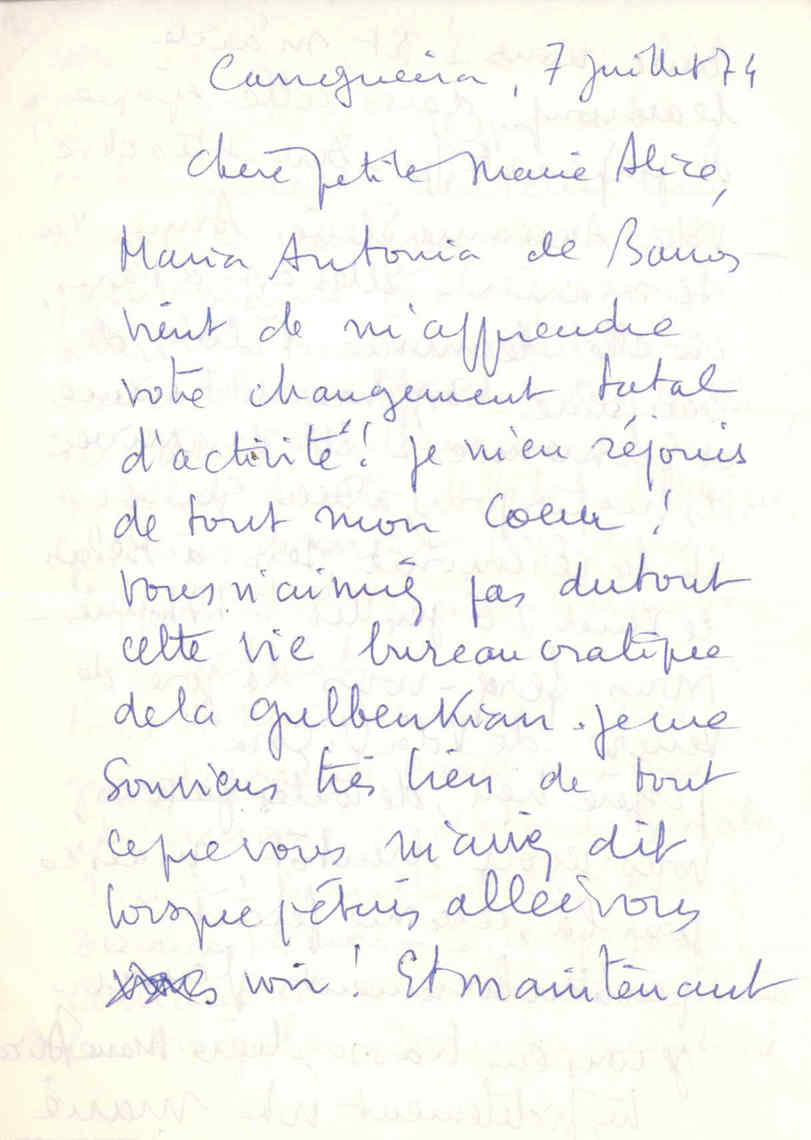 Carregueira, 7 juillet 74
chère petite Marie Alice,
Maria Antonia de Barros
vient de m'apprendre
votre changement total
d'activité ! je m'en réjouis
de tout mon coeur !
vous n'aimiez pas du tout
cette vie bureaucratique
de la gulbenkian. je me
souviens très bien de tout
ce que vous m'aviez dit
lorsque j'étais allée vous
voir ! Et maintenant